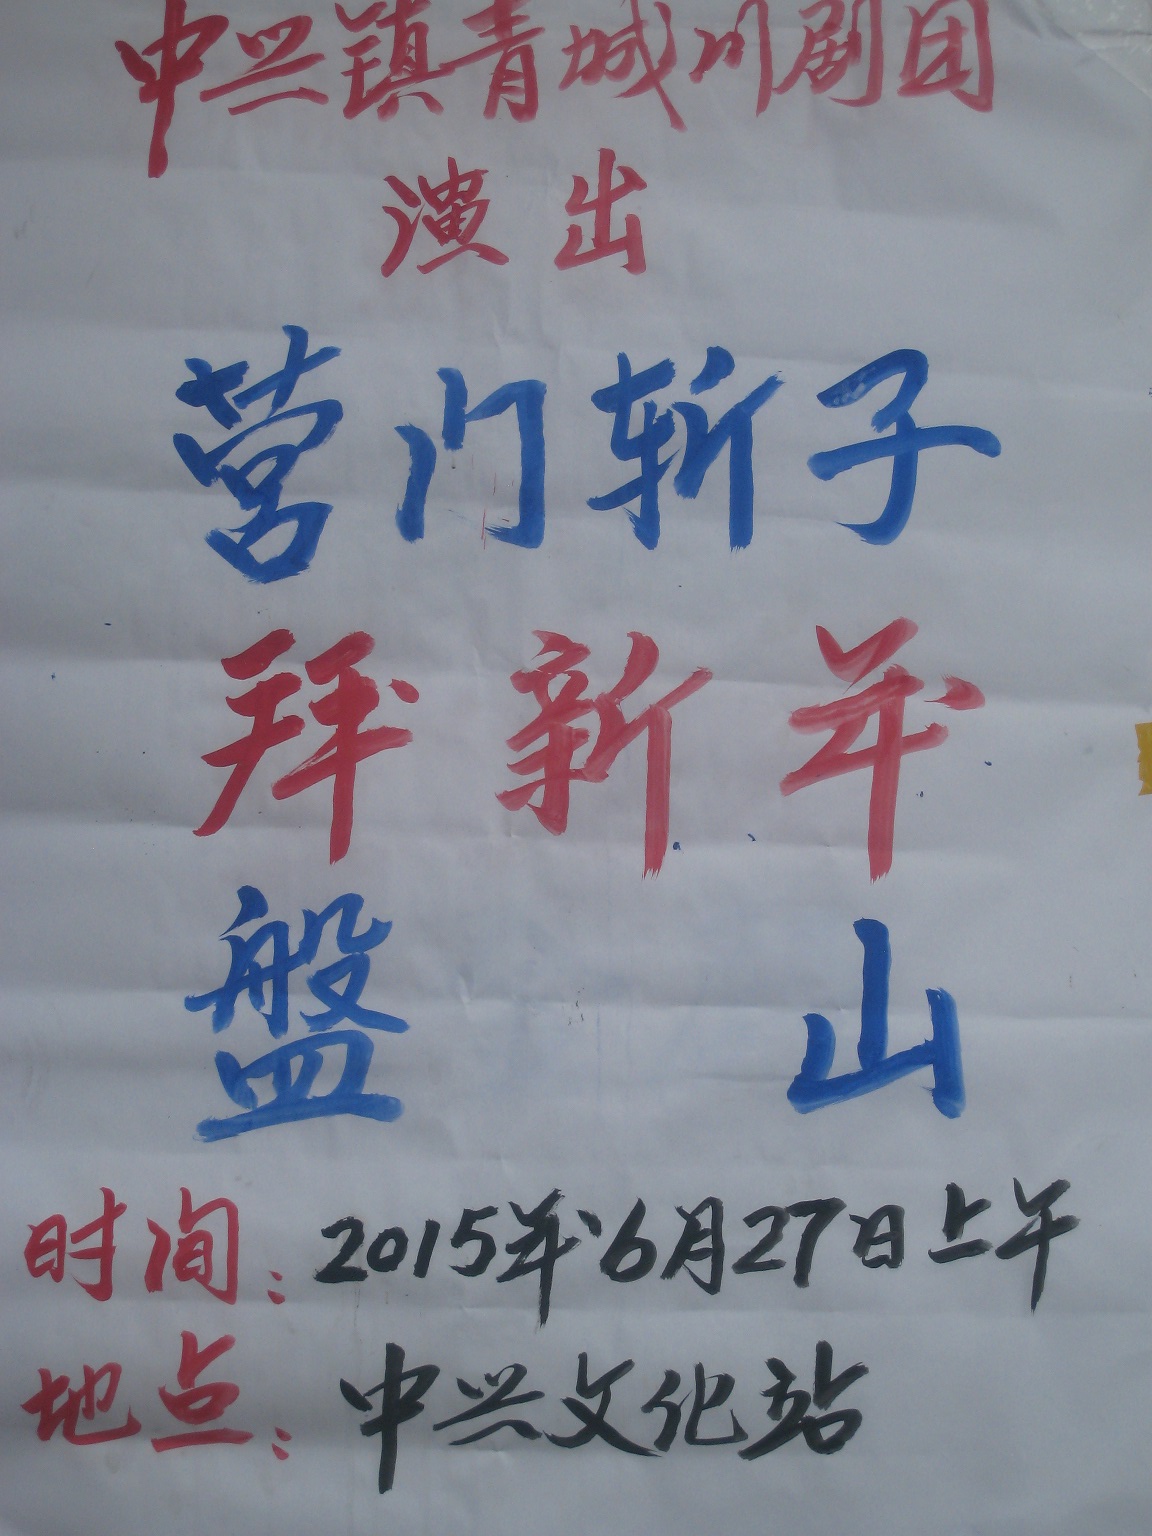 中兴镇青城川剧团
演出
营门斩子
拜新年
盤山
时间：2015年6月27日上午
地点：中兴文化站